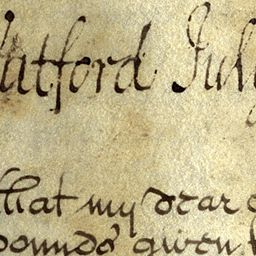 latford July
that my dear
pounds given